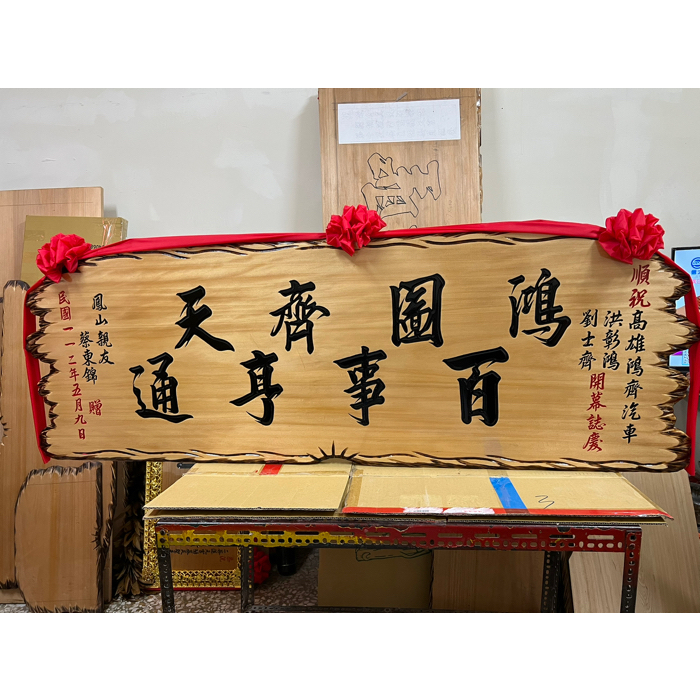 順祝
高雄鴻齊汽車
洪彰鴻
劉士齊
開幕誌慶
鴻圖齊天
百事亨通
鳳山親友
蔡東錦
贈
民國一一二年五月九日